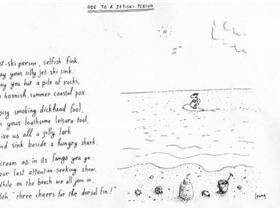 ODE TO A JET-SKI PERSON
et-ski person, selfish fink,
ay your silly jet-ski sink.
ay you hit a pile of rocks,
h hoonish, summer coastal pox.
oisy smoking dickhead fool,
n your loathsome leisure tool,
ive us all a jolly lark
nd sink beside a hungry shark.
cream as in its fangs you go,
our last attention-seeking show,
hile on the beach we all join in
ith "three cheers for the dorsal fin!"
Leunig